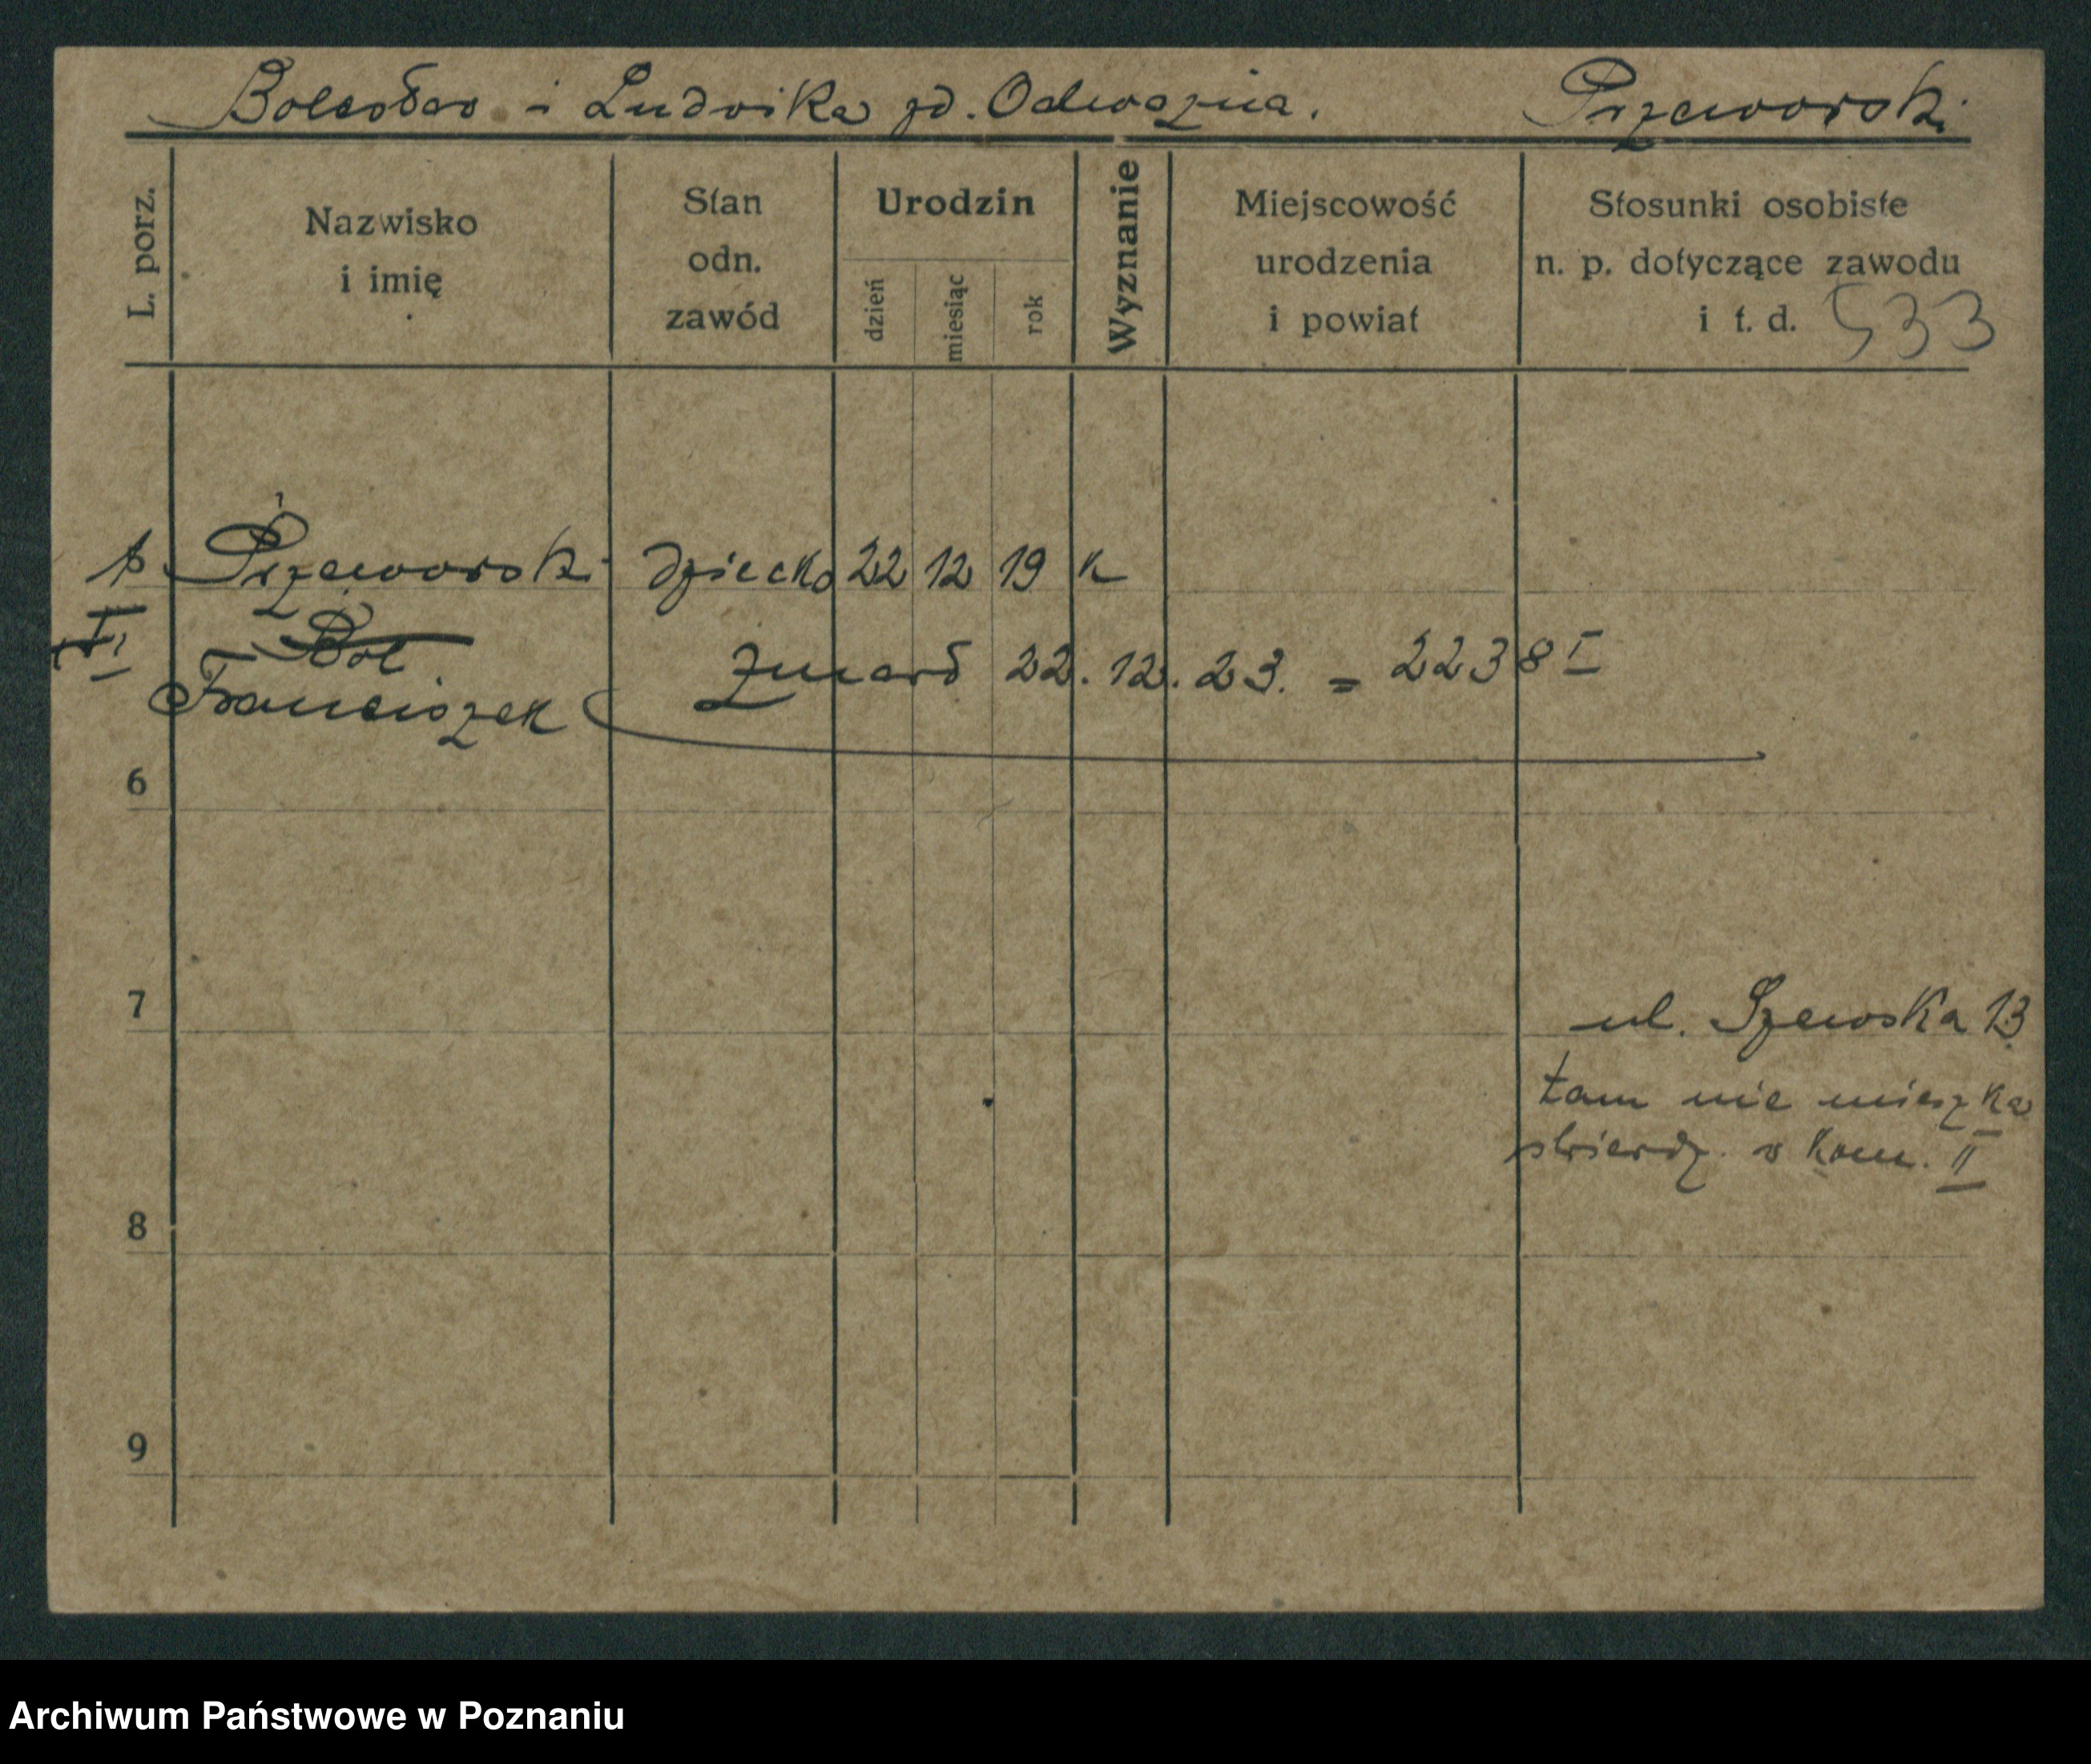 Bolesław i Ludwika zd. Odważna. Przeworski
L. porz.
Nazwisko
i imię
Stan
odn.
zawód
Urodzin
dzień
miesiąc
rok
Wyznanie
Miejscowość
urodzenia
i powiat
Stosunki osobiste
n. p. dotyczące zawodu
i t. d. 533
Przeworski dziecko 22 12 19 k
Bol
Franciszek
zmarł 22. 12. 23. = 2238 I
6
7
ul. Szewska 13
tam nie mieszka
stwierdz. w kom. II
8
9
Archiwum Państwowe w Poznaniu